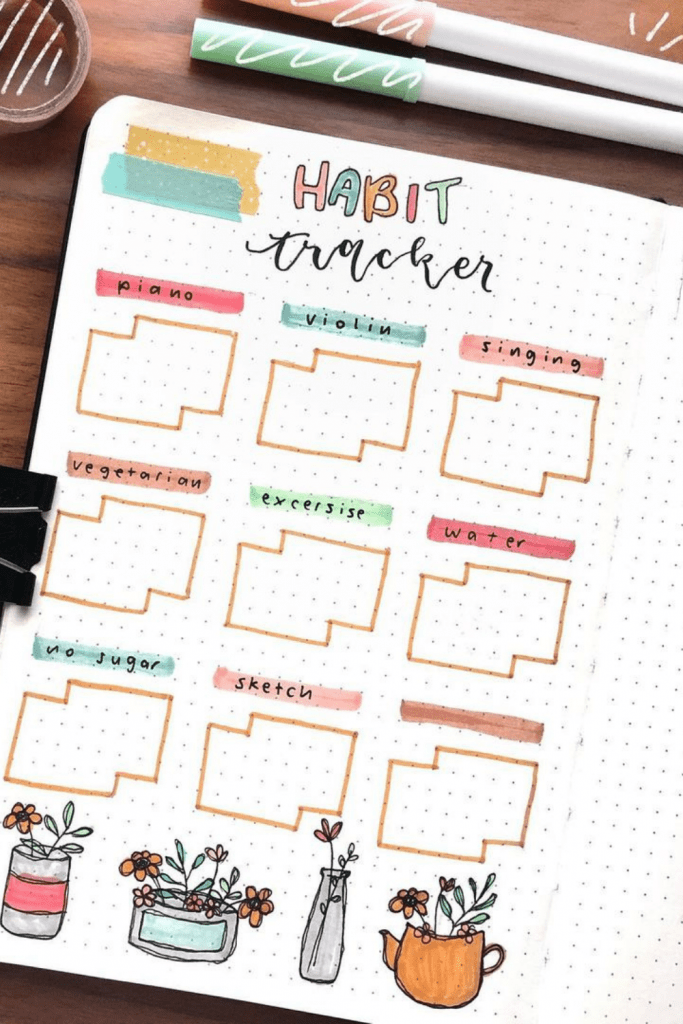 HABIT
tracker
piano
violin
singing
vegetarian
excersise
water
no sugar
sketch